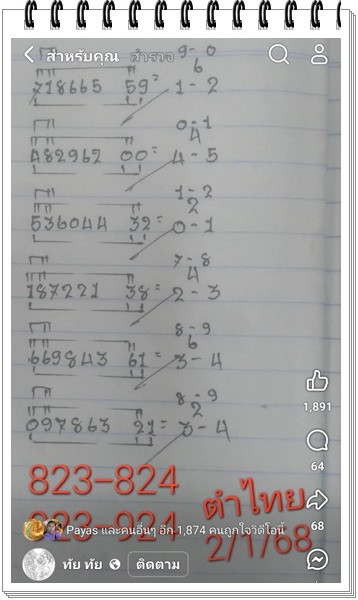 สำหรับคุณ สำรวจ
9-0
6
718665 59= 1-2
0-1
4
482962 00= 4-5
1-2
2
536044 32= 0-1
7-8
4
187221 38= 2-3
8-9
6
669843 61= 3-4
8-9
2
097863 21= 3-4
1,891
64
68
823-824
923-924
ตำไทย
2/1/68
Payas และคนอื่นๆ อีก 1,874 คนถูกใจวิดีโอนี้
ทัย ทัย ติดตาม